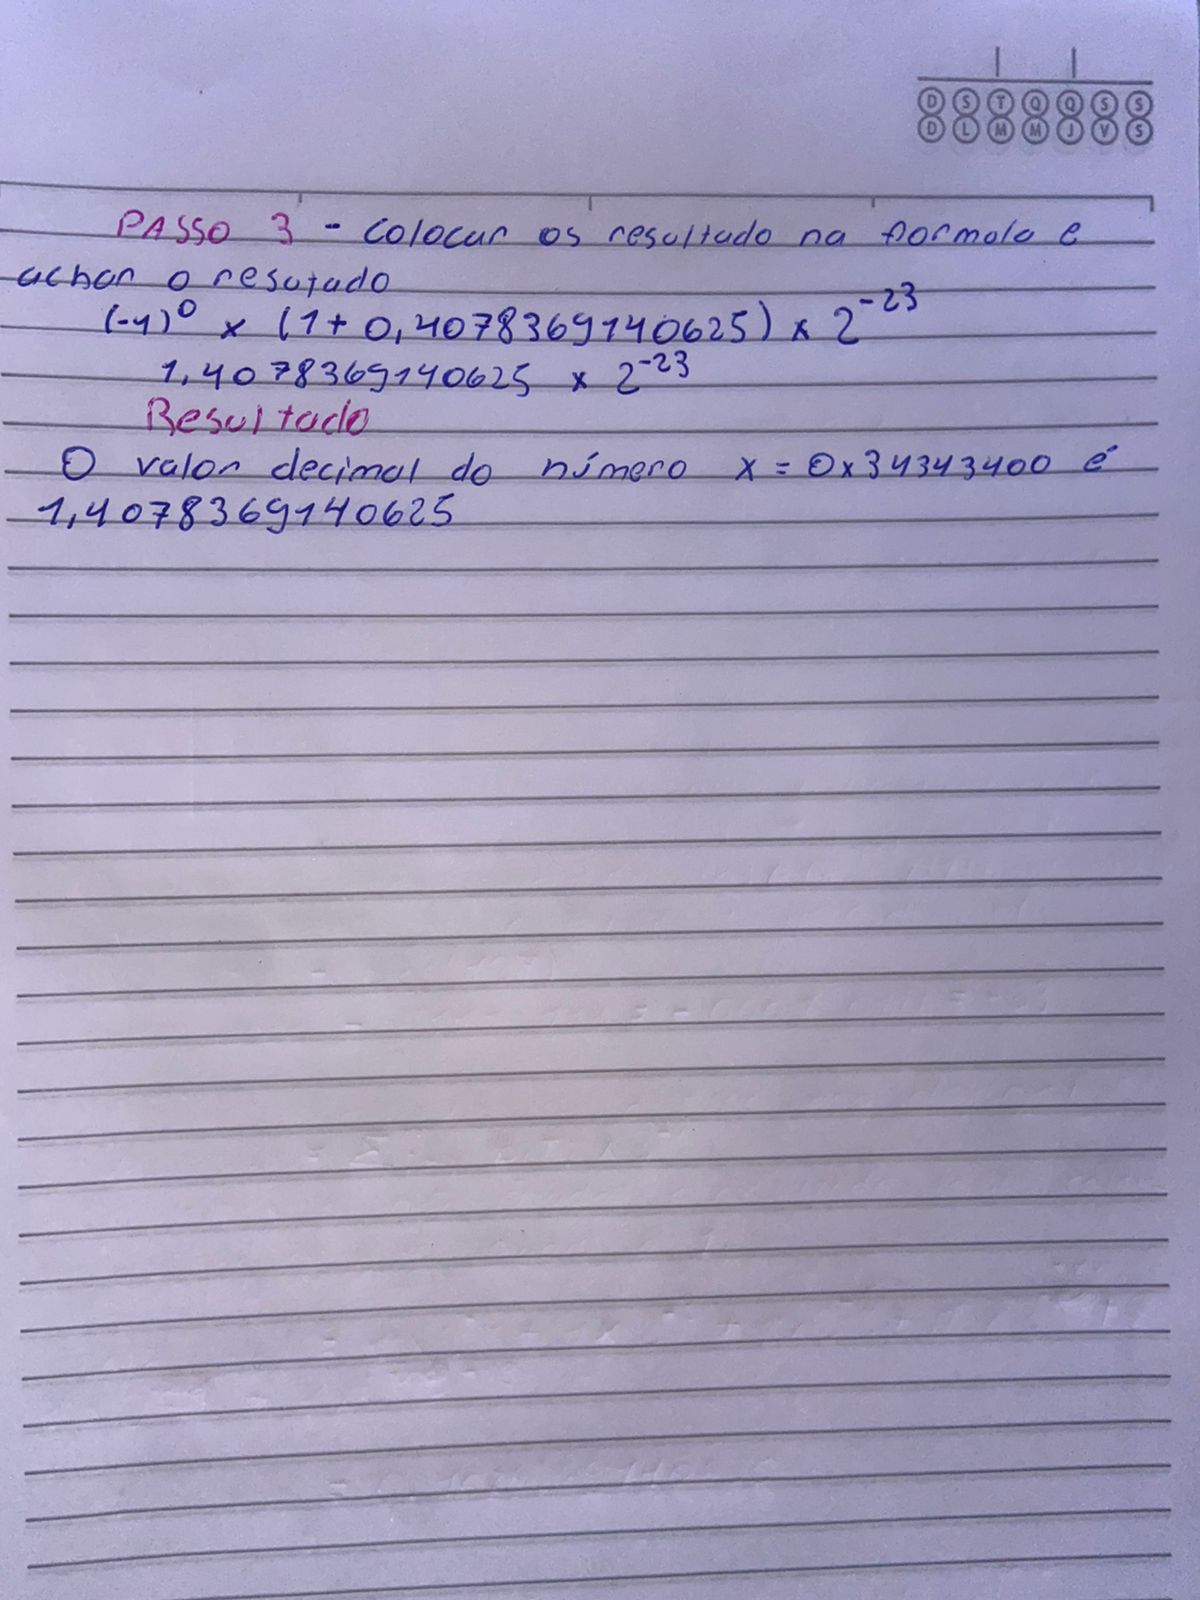 D S T Q Q S S
D L M M J V S
PASSO 3 - Colocar os resultado na formola e
achar o resutado
(-1)⁰ x (1 + 0,4078369140625) x 2⁻²³
1,4078369140625 x 2⁻²³
Resultado
O valor decimal do número x = 0x34343400 é
1,4078369140625